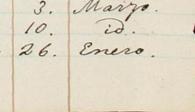 3. Marzo.
10. id.
26. Enero.